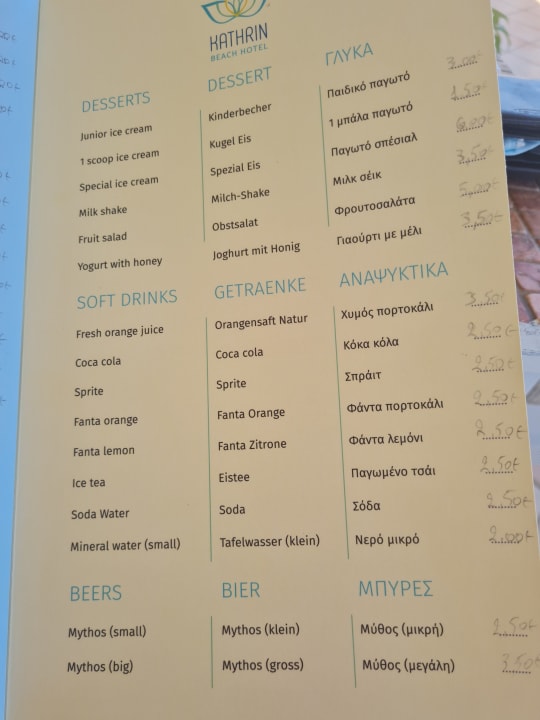 KATHRIN
BEACH HOTEL
DESSERTS DESSERT ΓΛΥΚΑ
Junior ice cream Kinderbecher Παιδικό παγωτό 3.00€
1 scoop ice cream Kugel Eis 1 μπάλα παγωτό 1.50€
Special ice cream Spezial Eis Παγωτό σπέσιαλ 6.00€
Milk shake Milch-Shake Μιλκ σέικ 3.50€
Fruit salad Obstsalat Φρουτοσαλάτα 5.00€
Yogurt with honey Joghurt mit Honig Γιαούρτι με μέλι 3.50€
SOFT DRINKS GETRAENKE ΑΝΑΨΥΚΤΙΚΑ
Fresh orange juice Orangensaft Natur Χυμός πορτοκάλι 3.50€
Coca cola Coca cola Κόκα κόλα 2.50€
Sprite Sprite Σπράιτ 2.50€
Fanta orange Fanta Orange Φάντα πορτοκάλι 2.50€
Fanta lemon Fanta Zitrone Φάντα λεμόνι 2.50€
Ice tea Eistee Παγωμένο τσάι 2.50€
Soda Water Soda Σόδα 2.50€
Mineral water (small) Tafelwasser (klein) Νερό μικρό 2.00€
BEERS BIER ΜΠΥΡΕΣ
Mythos (small) Mythos (klein) Μύθος (μικρή) 2.50€
Mythos (big) Mythos (gross) Μύθος (μεγάλη) 3.50€